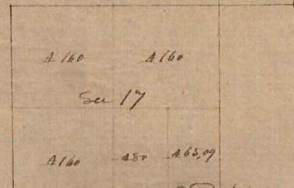 A 160 A 160
Sec 17
A 160 A 80 A 63,09